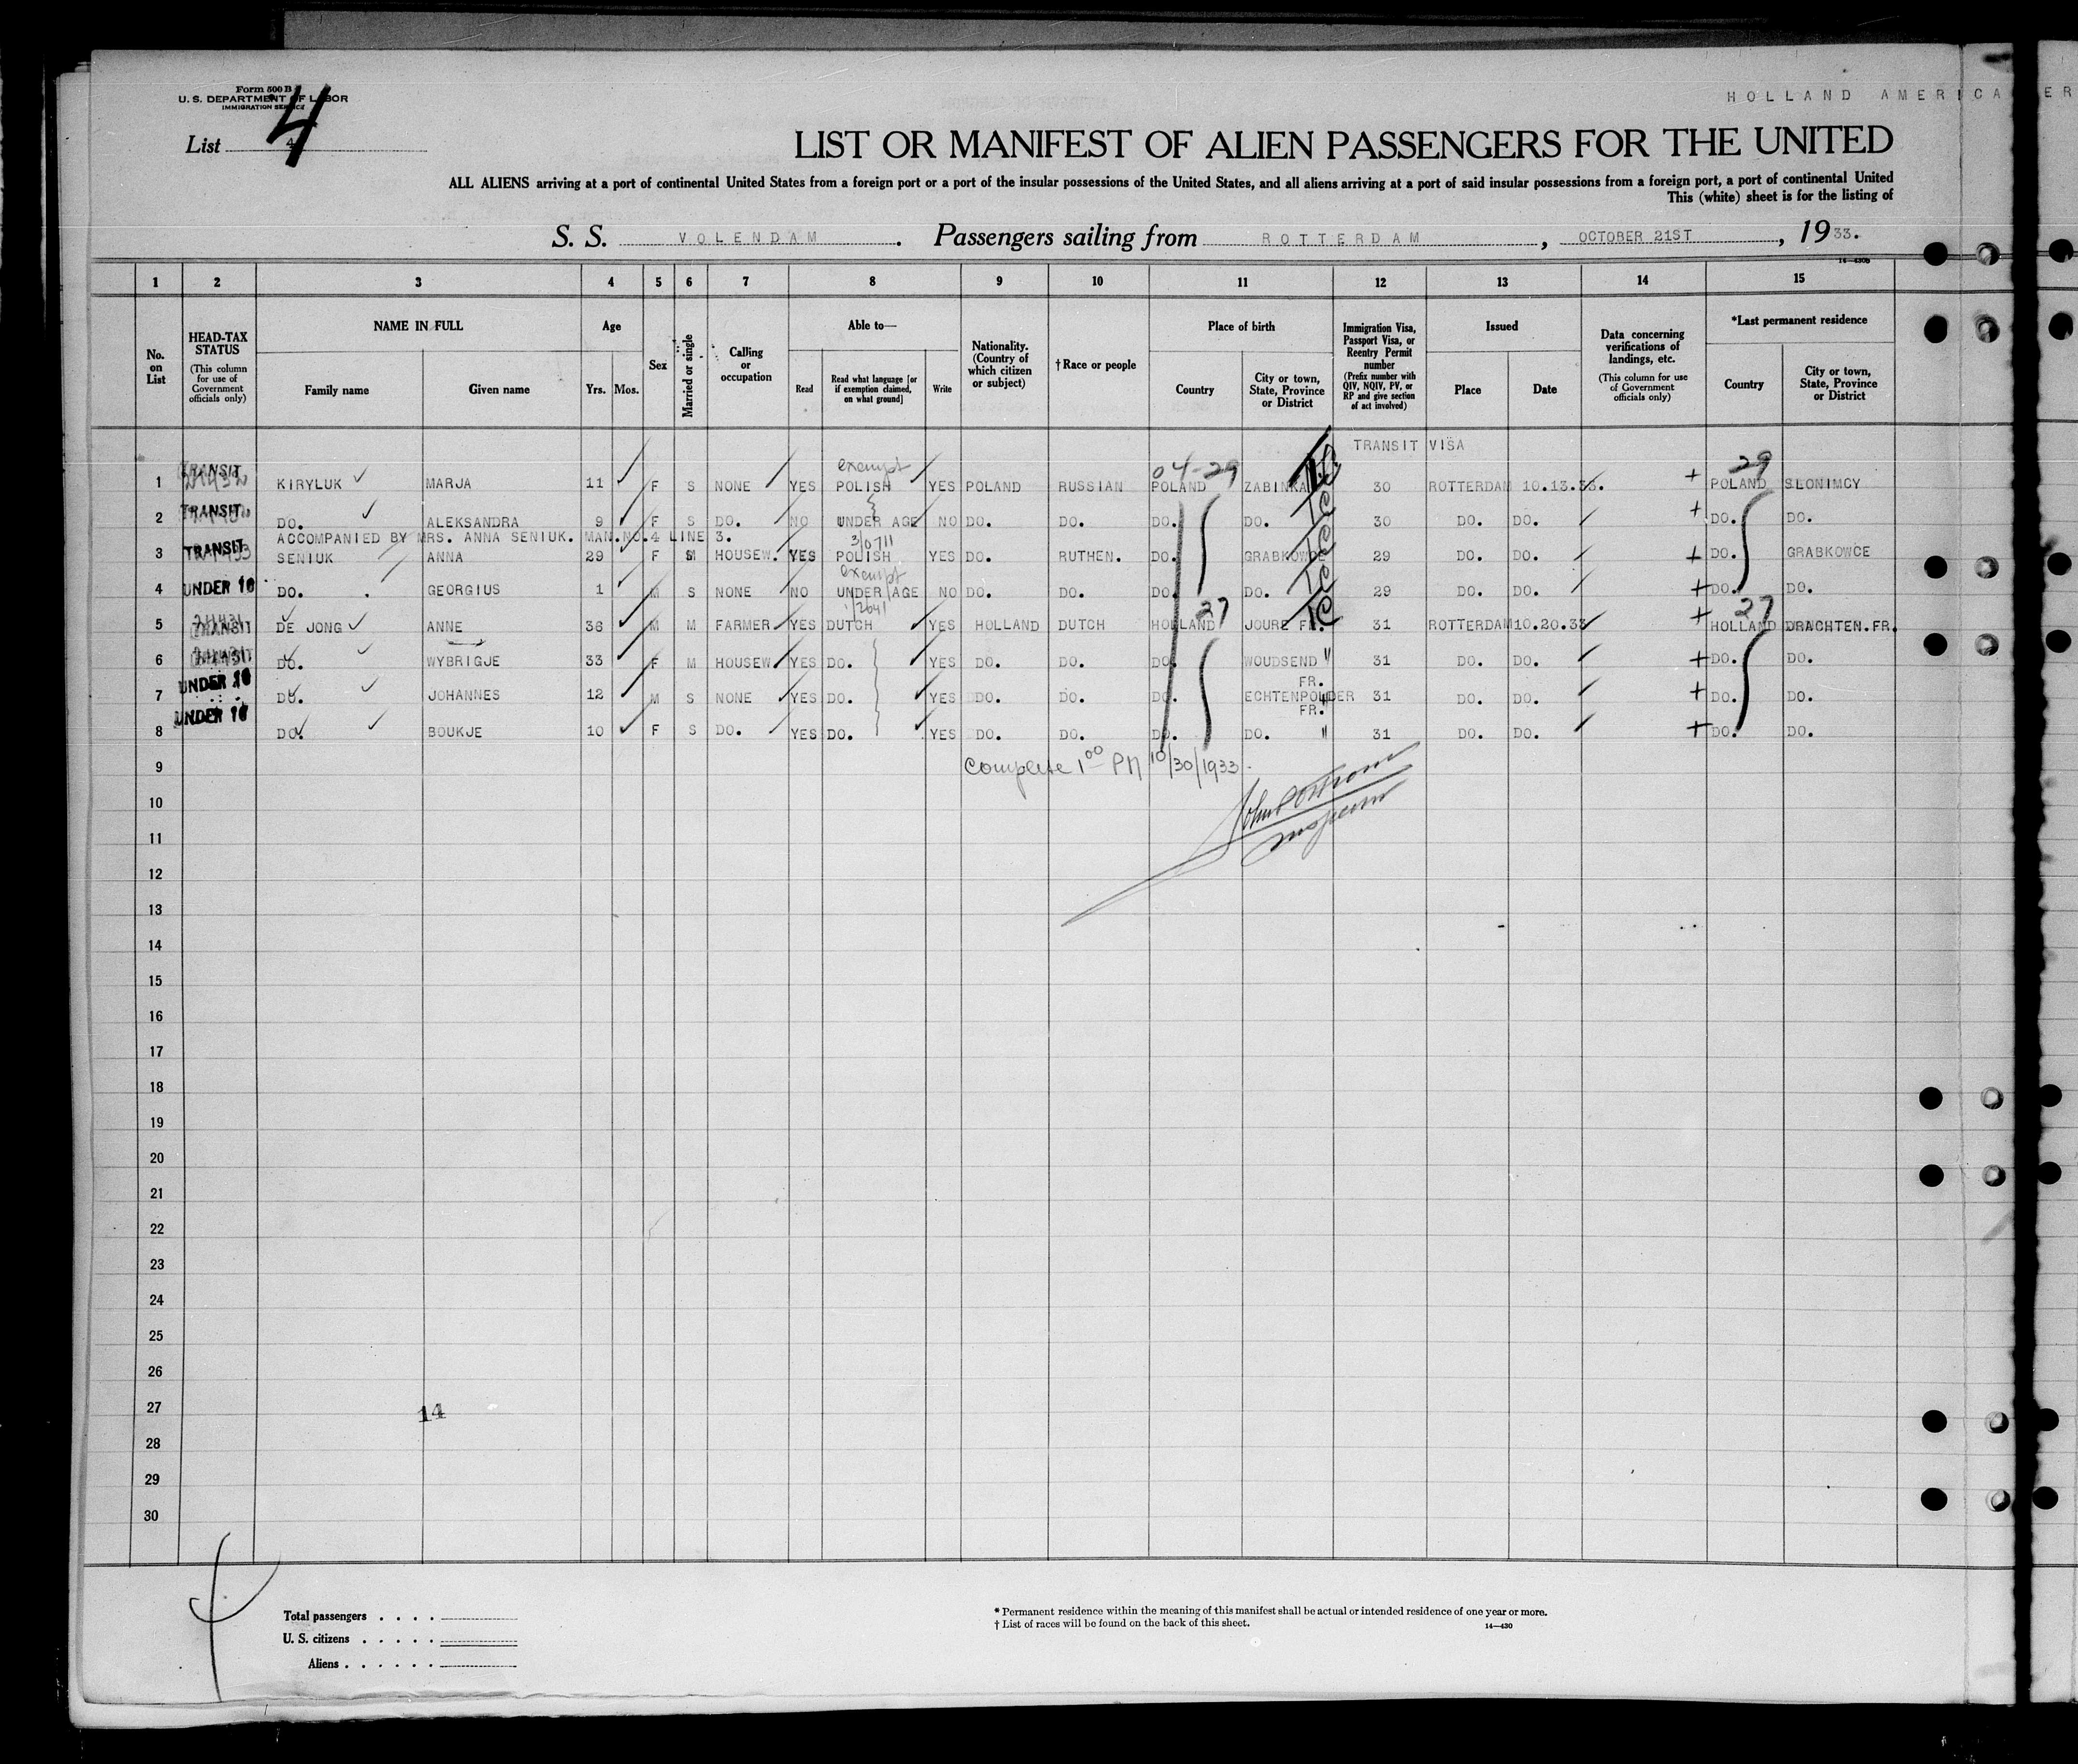 Form 500 B
U. S. DEPARTMENT OF LABOR
IMMIGRATION SERVICE
HOLLAND AMERICA
ER
List 4
4
LIST OR MANIFEST OF ALIEN PASSENGERS FOR THE UNITED
ALL ALIENS arriving at a port of continental United States from a foreign port or a port of the insular possessions of the United States, and all aliens arriving at a port of said insular possessions from a foreign port, a port of continental United
This (white) sheet is for the listing of
S. S. VOLENDAM. Passengers sailing from ROTTERDAM, OCTOBER 21ST, 1933.
1 2 3 4 5 6 7 8 9 10 11 12 13 14 15
No. on List
HEAD-TAX STATUS (This column for use of Government officials only)
NAME IN FULL
Family name Given name
Age
Yrs. Mos.
Sex
Married or single
Calling or occupation
Able to—
Read
Read what language [or if exemption claimed, on what ground]
Write
Nationality. (Country of which citizen or subject)
†Race or people
Place of birth
Country
City or town, State, Province or District
Immigration Visa, Passport Visa, or Reentry Permit number (Prefix number with QIV, NQIV, PV, or RP and give section of act involved)
Issued
Place Date
Data concerning verifications of landings, etc. (This column for use of Government officials only)
*Last permanent residence
Country
City or town, State, Province or District
TRANSIT VISA
exempt 04-29 29
1 TRANSIT KIRYLUK MARJA 11 F S NONE YES POLISH YES POLAND RUSSIAN POLAND ZABINKA TC 30 ROTTERDAM 10.13.33. + POLAND SLONIMCY
2 TRANSIT DO. ALEKSANDRA 9 F S DO. NO UNDER AGE NO DO. DO. DO. DO. TC 30 DO. DO. + DO. DO.
ACCOMPANIED BY MRS. ANNA SENIUK. MAN.NO.4 LINE 3.
3/0711
3 TRANSIT SENIUK ANNA 29 F M HOUSEW. YES POLISH YES DO. RUTHEN. DO. GRABKOWCE TC 29 DO. DO. + DO. GRABKOWCE
exempt
4 UNDER 16 DO. GEORGIUS 1 M S NONE NO UNDER AGE NO DO. DO. DO. DO. TC 29 DO. DO. + DO. DO.
27 27
5 TRANSIT DE JONG ANNE 36 M M FARMER YES DUTCH YES HOLLAND DUTCH HOLLAND JOURE FR. TC 31 ROTTERDAM 10.20.33 + HOLLAND DRACHTEN.FR.
6 DO. WYBRIGJE 33 F M HOUSEW. YES DO. YES DO. DO. DO. WOUDSEND " 31 DO. DO. + DO. DO.
FR.
7 UNDER 16 DO. JOHANNES 12 M S NONE YES DO. YES DO. DO. DO. ECHTENPOLDER 31 DO. DO. + DO. DO.
FR.
8 UNDER 16 DO. BOUKJE 10 F S DO. YES DO. YES DO. DO. DO. DO. " 31 DO. DO. + DO. DO.
9 Complete 1 00 PM 10/30/1933.
10
11
Inspector
12
13
14
15
16
17
18
19
20
21
22
23
24
25
26
27
14
28
29
30
Total passengers . . . .
U. S. citizens . . . . .
Aliens . . . . . .
* Permanent residence within the meaning of this manifest shall be actual or intended residence of one year or more.
† List of races will be found on the back of this sheet. 14—430